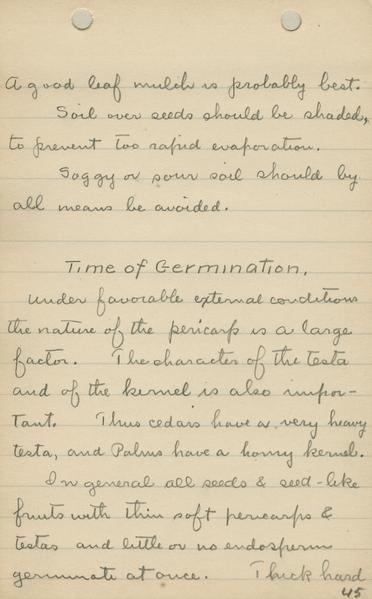 A good leaf mulch is probably best.
Soil over seeds should be shaded,
to prevent too rapid evaporation.
Soggy or sour soil should by
all means be avoided.
Time of Germination.
Under favorable external conditions
the nature of the pericarp is a large
factor. The character of the testa
and of the kernel is also impor-
tant. Thus cedars have a very heavy
testa, and Palms have a horny kernel.
In general all seeds & seed-like
fruits with thin soft pericarps &
testas and little or no endosperm
germinate at once. Thick hard
45